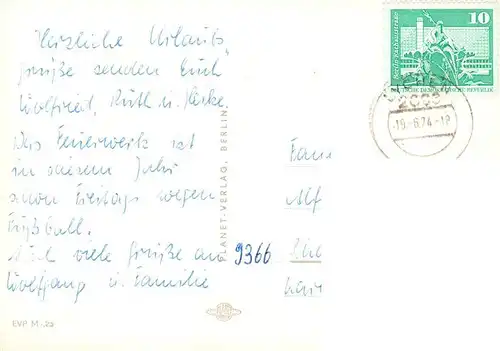 Herzliche Urlaubs,
grüße senden Euch
Wolfried, Ruth u. Heike.
Das Feuerwerk ist
in diesem Jahr
schon Freitags wegen
Fußball.
viele Grüße an
Wolfgang u. Familie
EVP M -,22
PLANET-VERLAG, BERLIN
10
DEUTSCHE DEMOKRATISCHE REPUBLIK
-6.74-
Fam
Alf
9366